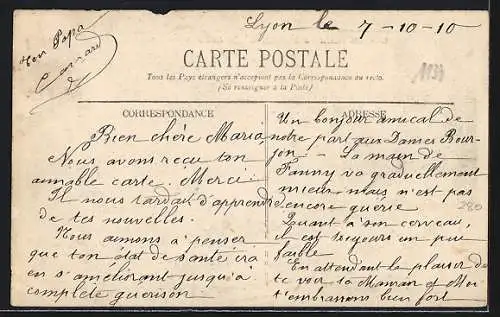 Lyon le 7-10-10
Ton Papa
CARTE POSTALE
Tous les Pays étrangers n'acceptent pas la Correspondance au recto.
(Se renseigner à la Poste)
1134
CORRESPONDANCE
Bien chère Maria,
Nous avons recu ton
aimable carte. Merci
Il nous tardait d'apprendre
de tes nouvelles.
Nous aimons à penser
que ton état de santé ira
en s'améliorant jusqu'à
complète guérison
ADRESSE
Un bonjour amical de
notre part aux Dames Bour-
jon. - La main de
Fanny va graduellement
mieux mais n'est pas
encore guérie.
280
Quant à son cerveau,
il est toujours un peu
faible
En attendant le plaisir de
te voir ta Maman et Moi
t'embrassons bien fort